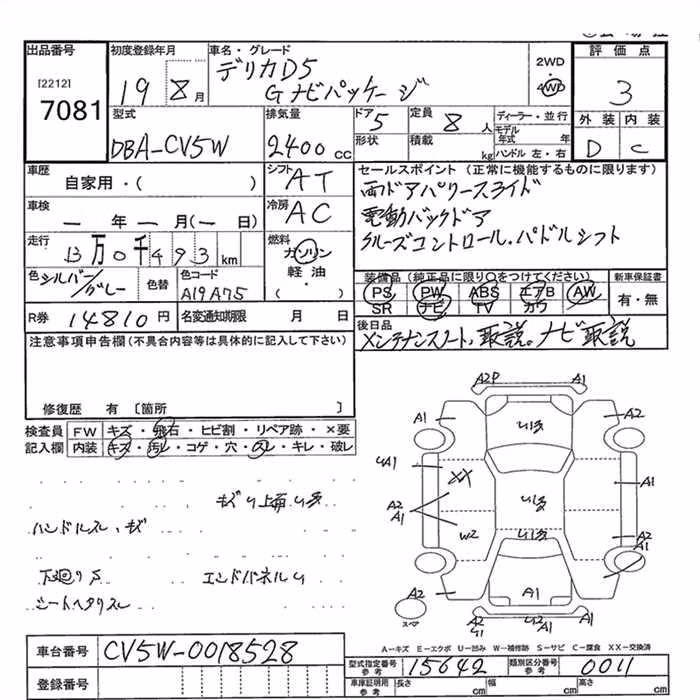 出品番号
[2212]
7081
初度登録年月
19 8月
車名・グレード
デリカD5
Gナビパッケージ
2WD
4WD
評価点
3
外装 内装
D C
型式
DBA-CV5W
排気量
2400cc
ドア 5
形状
定員 8人
積載 kg
ディーラー・並行
モデル年式 年
ハンドル 左・右
車歴
自家用・( )
シフト AT
車検
一年一月(一日)
冷房 AC
走行
13万0千493km
燃料
ガソリン
軽油・
( )
色 シルバー/グレー
色替
色コード
A19A75
R券 14810円
名変通知期限 月 日
セールスポイント(正常に機能するものに限ります)
両ドアパワースライド
電動バックドア
クルーズコントロール.パドルシフト
装備品(純正品に限り○をつけてください)
PS PW ABS エアB AW
SR ナビ TV カワ
新車保証書
有・無
後日品
メンテナンスノート,取説。ナビ取説
注意事項申告欄(不具合内容等は具体的に記入して下さい)
修復歴 有 〔箇所 〕
検査員 FW キズ・飛石・ヒビ割・リペア跡・×要
記入欄 内装 キズ・汚レ・コゲ・穴・スレ・キレ・破レ
ハンドルスレ・キズ
下廻りS
エンドパネルU
シートヘタリスレ
A2P A1
A1 A2
U13
UA1 XX A1
A2
A1 U13
W2 U13 A2
A1
A2 A1
スペア
A2
U1 A2
A-キズ E-エクボ U-凹み W-補修跡 S-サビ C-腐食 XX-交換済
車台番号 CV5W-0018528
登録番号
型式指定番号 参考 15642
類別区分番号 参考 0011
車庫証明用 参考 長さ cm 幅 cm 高さ cm